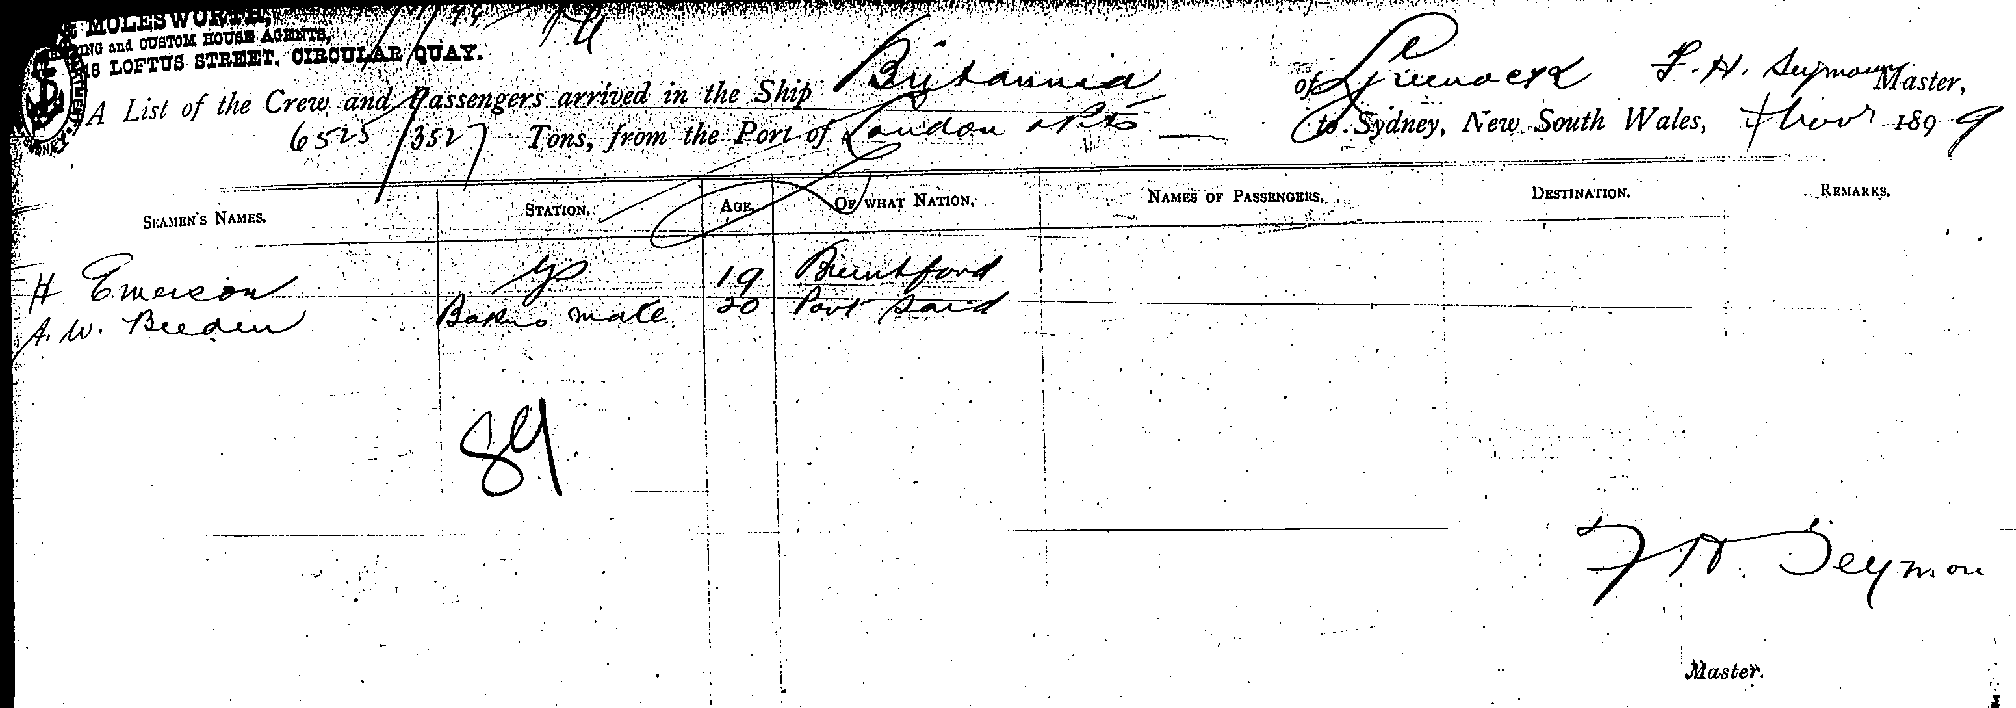 MOLESWORTH,
ING and CUSTOM HOUSE AGENTS,
16 LOFTUS STREET, CIRCULAR QUAY.
A List of the Crew and Passengers arrived in the Ship Britannia of Greenock F. H. Seymour Master,
6525/3527 Tons, from the Port of London & Pts to Sydney, New South Wales, 1899
SEAMEN'S NAMES. STATION. AGE. OF WHAT NATION. NAMES OF PASSENGERS. DESTINATION. REMARKS.
H Emerson 19 Brentford
A. W. Beeden Bakers mate 20 Port Said
89
F H. Seymour
Master.